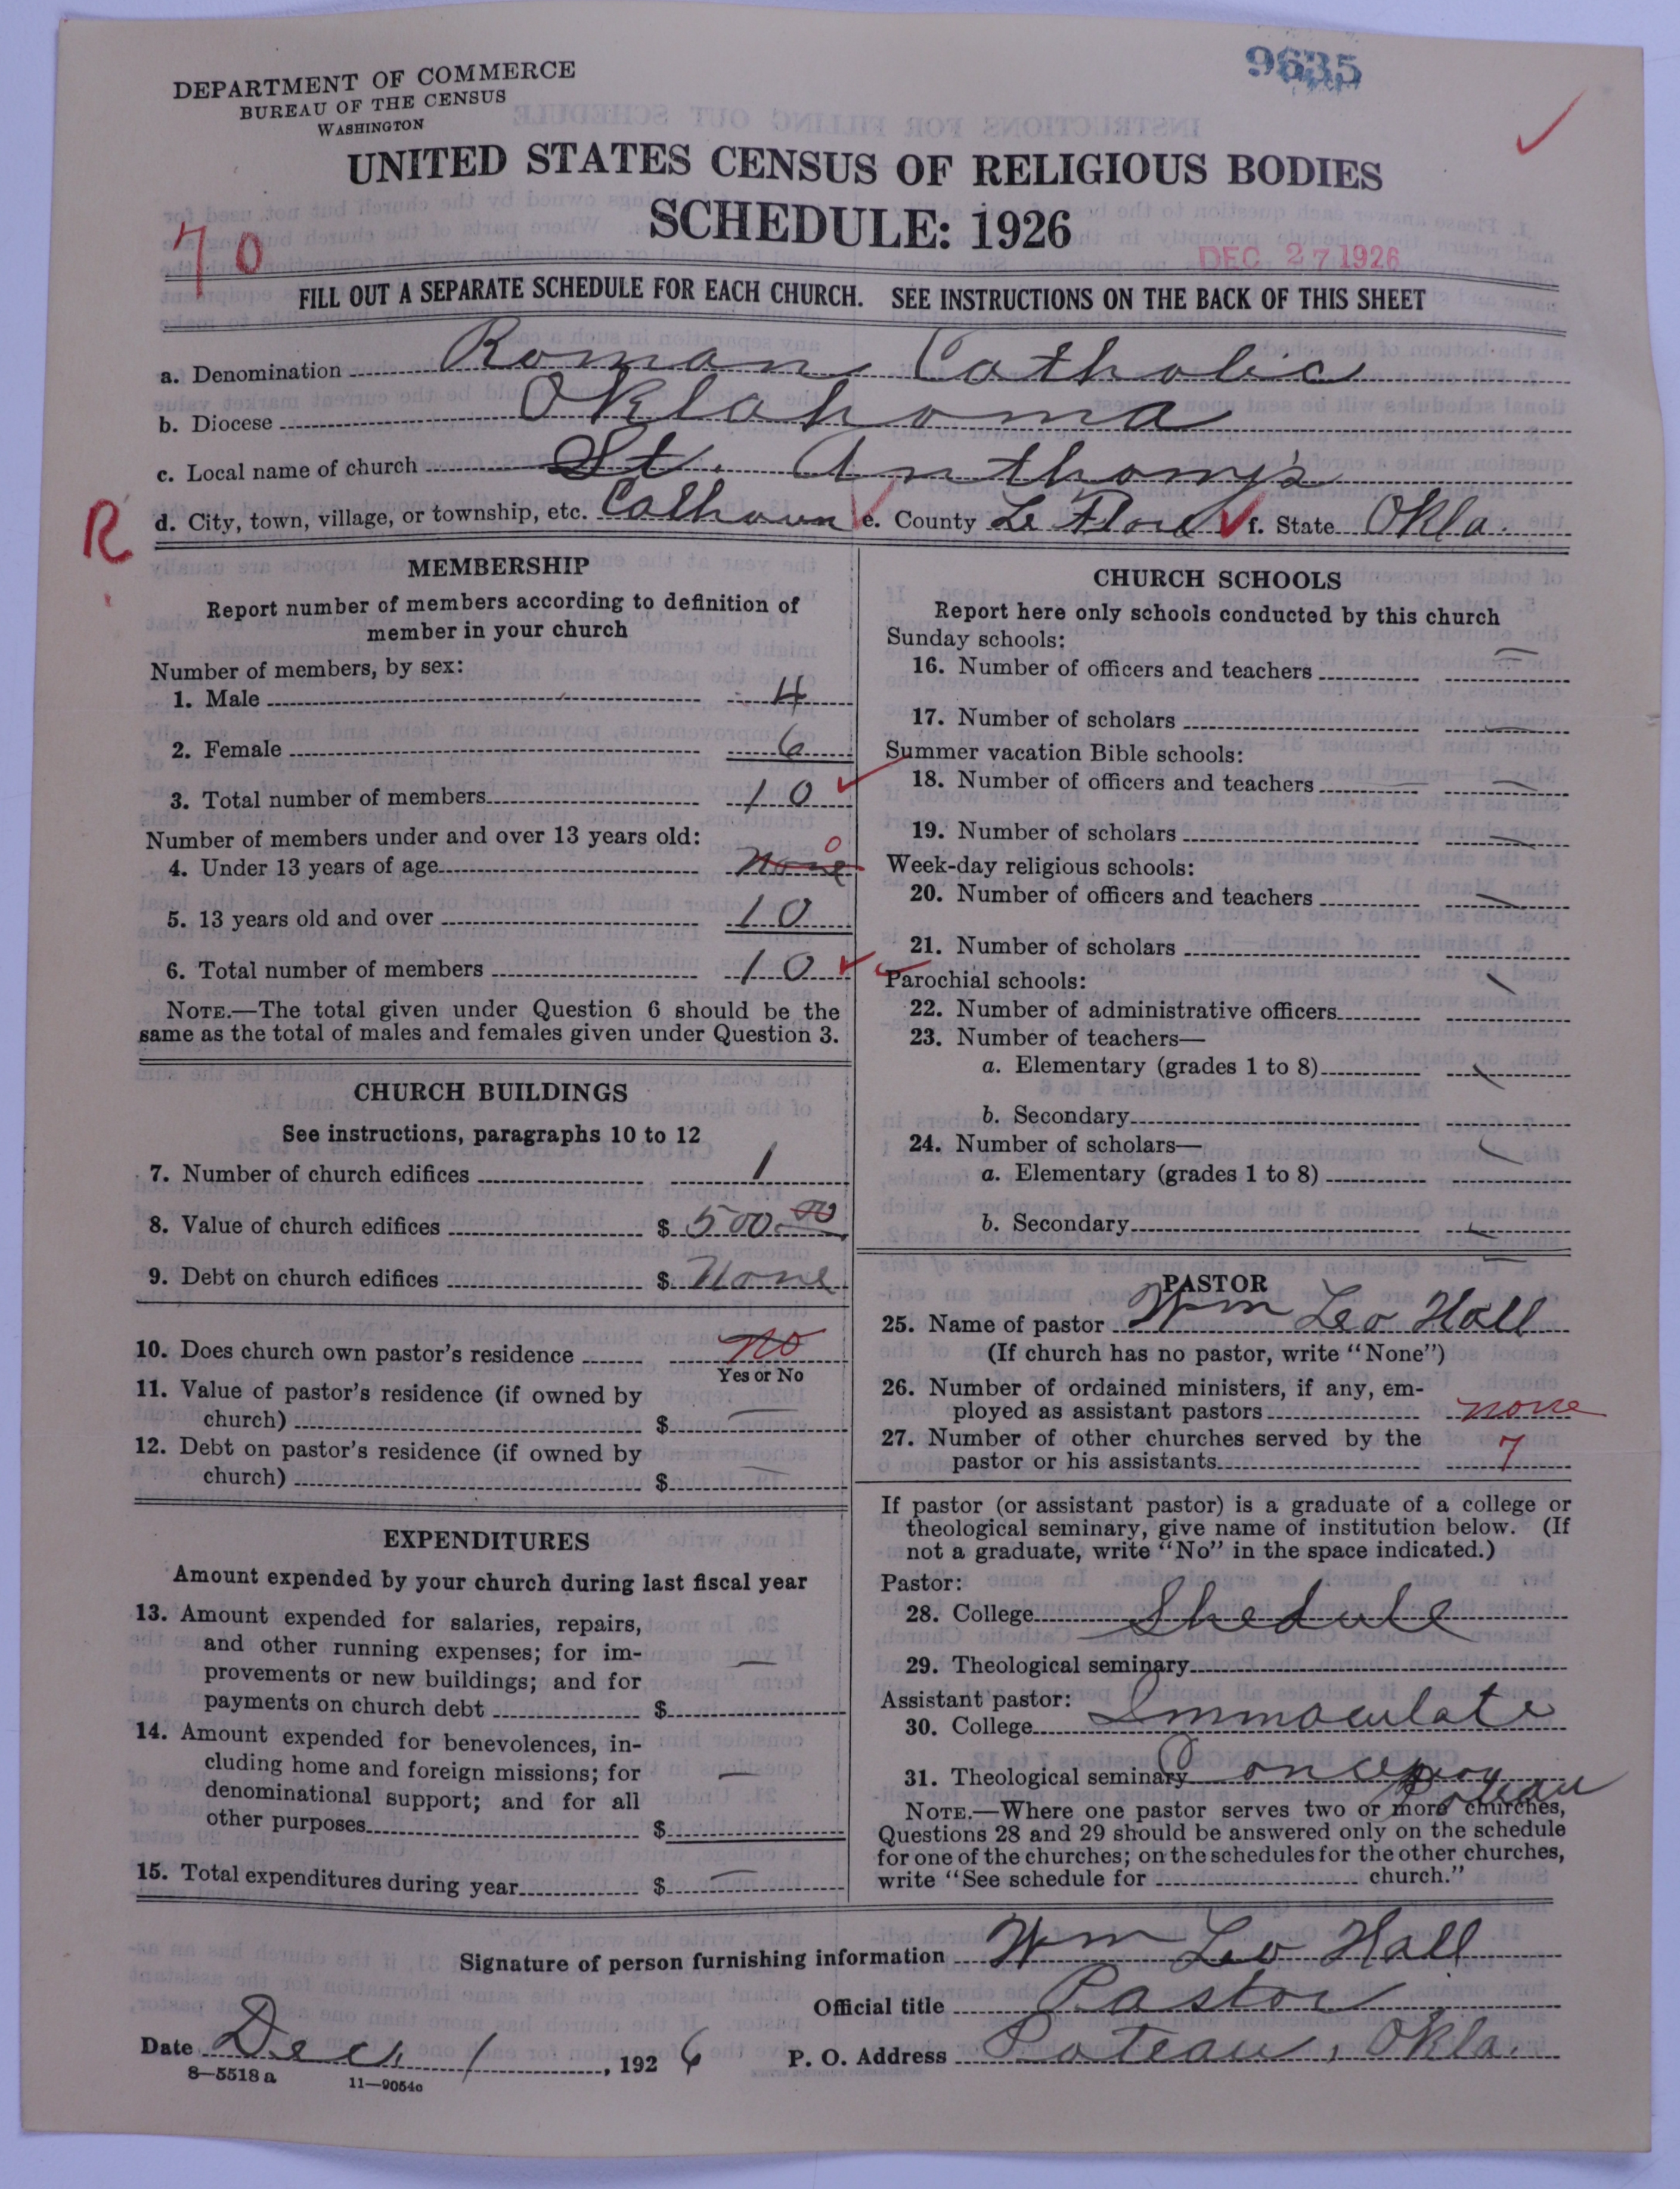 9635
DEPARTMENT OF COMMERCE
BUREAU OF THE CENSUS
WASHINGTON
UNITED STATES CENSUS OF RELIGIOUS BODIES
SCHEDULE: 1926
70
DEC 27 1926
FILL OUT A SEPARATE SCHEDULE FOR EACH CHURCH. SEE INSTRUCTIONS ON THE BACK OF THIS SHEET
a. Denomination Roman Catholic
b. Diocese Oklahoma
c. Local name of church St. Anthony's
R
d. City, town, village, or township, etc. Calhoun e. County Le Flore f. State Okla.
MEMBERSHIP
Report number of members according to definition of
member in your church
Number of members, by sex:
1. Male 4
2. Female 6
3. Total number of members 10
Number of members under and over 13 years old:
4. Under 13 years of age None 0
5. 13 years old and over 10
6. Total number of members 10
NOTE.—The total given under Question 6 should be the
same as the total of males and females given under Question 3.
CHURCH BUILDINGS
See instructions, paragraphs 10 to 12
7. Number of church edifices 1
8. Value of church edifices $ 500.00
9. Debt on church edifices $ None
10. Does church own pastor's residence no
Yes or No
11. Value of pastor's residence (if owned by
church) $ —
12. Debt on pastor's residence (if owned by
church) $ —
EXPENDITURES
Amount expended by your church during last fiscal year
13. Amount expended for salaries, repairs,
and other running expenses; for im-
provements or new buildings; and for
payments on church debt $ —
14. Amount expended for benevolences, in-
cluding home and foreign missions; for
denominational support; and for all
other purposes $ —
15. Total expenditures during year $ —
CHURCH SCHOOLS
Report here only schools conducted by this church
Sunday schools:
16. Number of officers and teachers —
17. Number of scholars —
Summer vacation Bible schools:
18. Number of officers and teachers —
19. Number of scholars —
Week-day religious schools:
20. Number of officers and teachers —
21. Number of scholars
Parochial schools:
22. Number of administrative officers
23. Number of teachers—
a. Elementary (grades 1 to 8)
b. Secondary
24. Number of scholars—
a. Elementary (grades 1 to 8)
b. Secondary
PASTOR
25. Name of pastor Wm Leo Hall
(If church has no pastor, write "None")
26. Number of ordained ministers, if any, em-
ployed as assistant pastors none
27. Number of other churches served by the
pastor or his assistants 7
If pastor (or assistant pastor) is a graduate of a college or
theological seminary, give name of institution below. (If
not a graduate, write "No" in the space indicated.)
Pastor:
28. College Shedule
29. Theological seminary
Assistant pastor:
30. College Immaculate
31. Theological seminary Concepion
Poteau
NOTE.—Where one pastor serves two or more churches,
Questions 28 and 29 should be answered only on the schedule
for one of the churches; on the schedules for the other churches,
write "See schedule for church."
Signature of person furnishing information Wm Leo Hall
Official title Pastor
Date Dec. 1, 1926 P. O. Address Poteau, Okla.
8—5518a 11—9054o